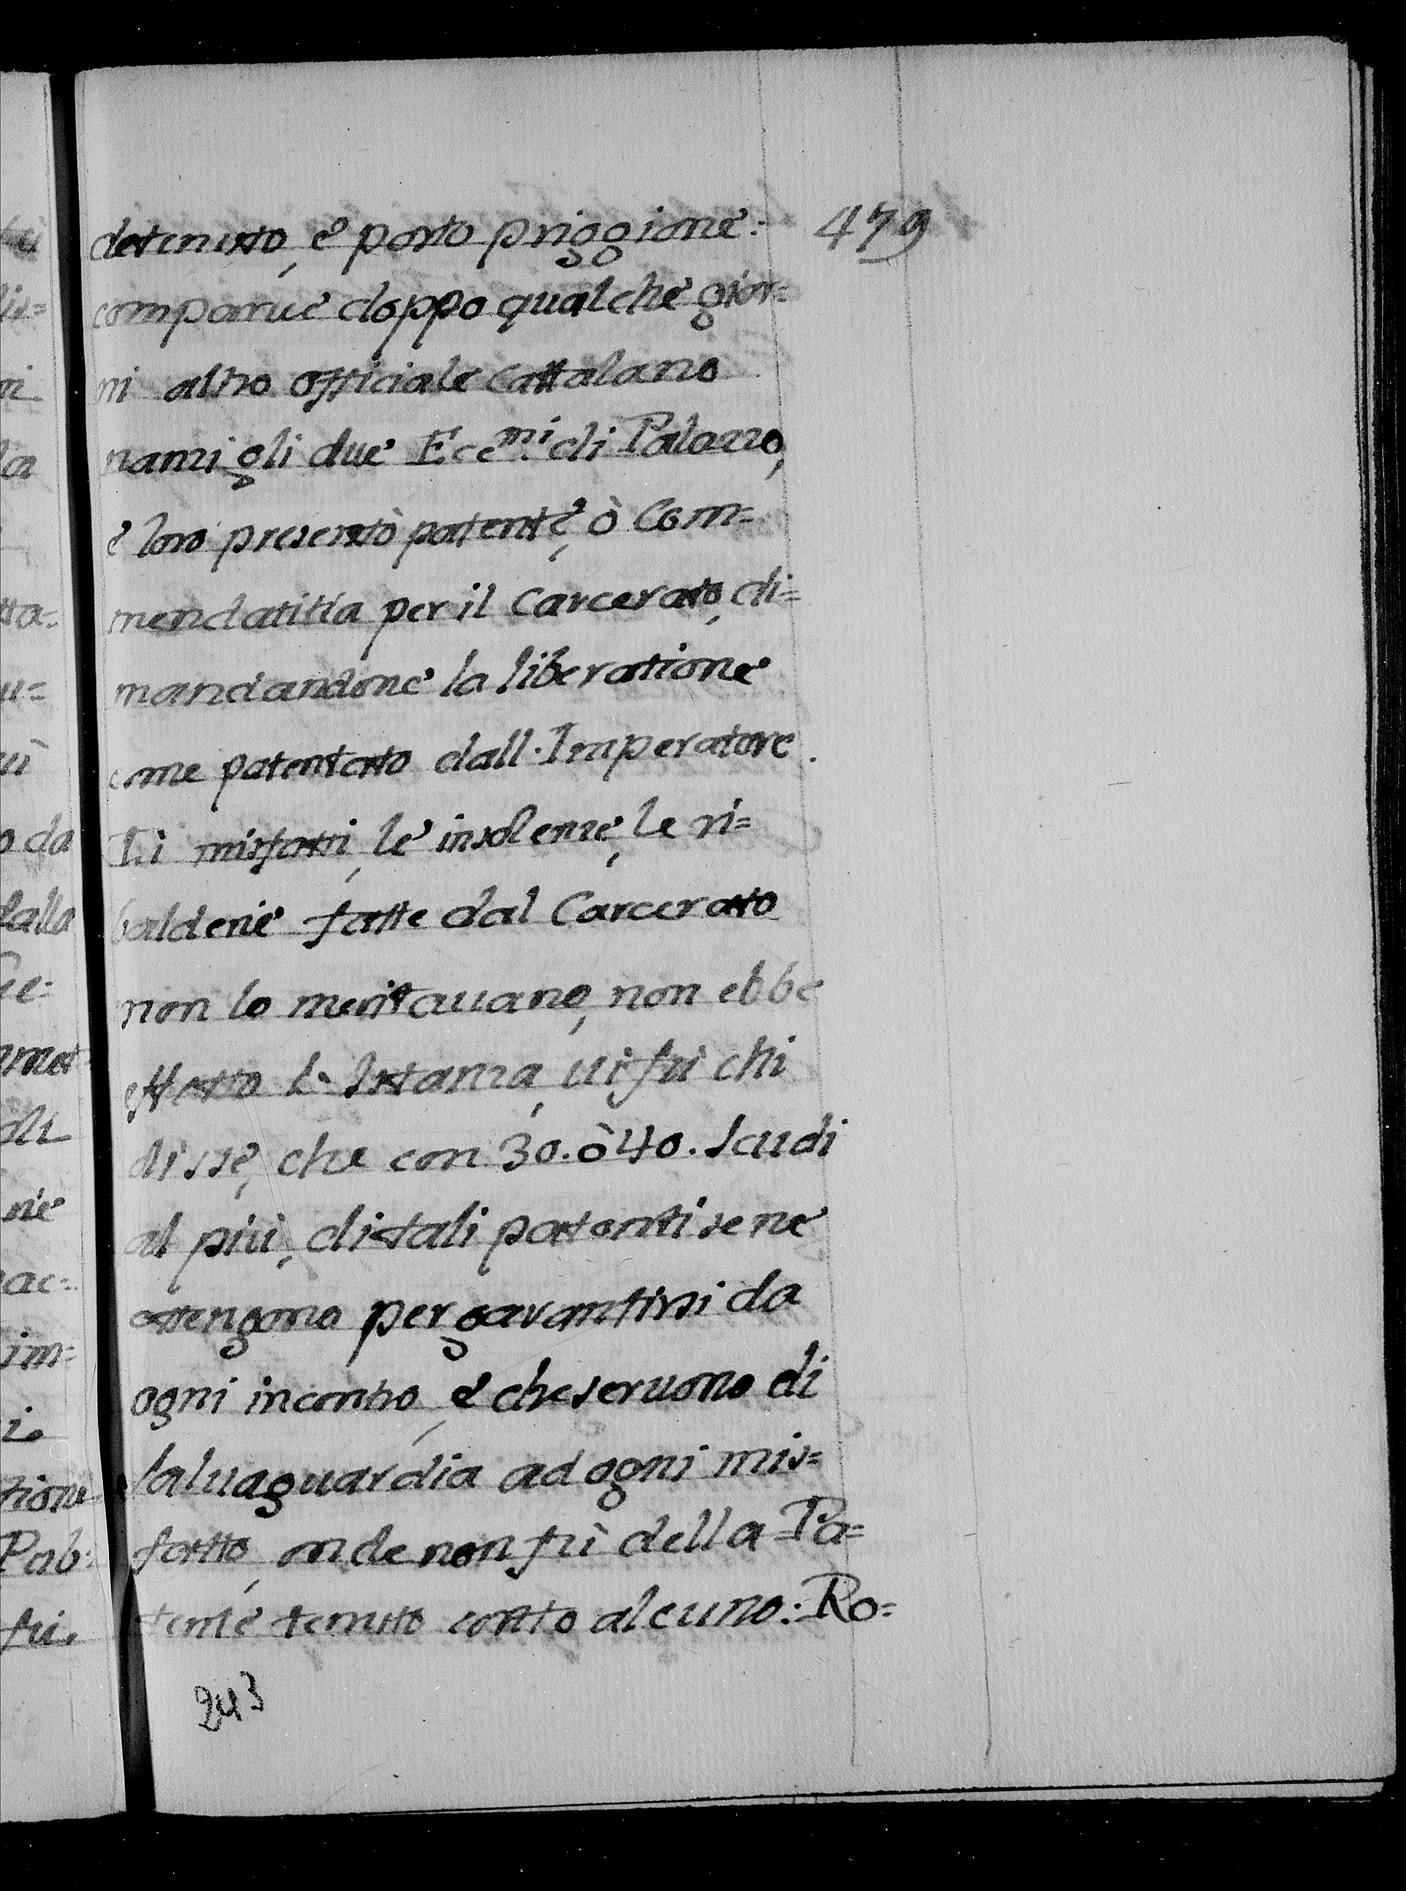 479
detenuto, e posto priggione:
comparue doppo qualche gior=
ni altro officiale Cattalano
nanzi gli due Ecc.mi di Palazzo,
e loro presentò patente, ò Com=
mendatitia per il Carcerato, di=
mandandone la liberatione
come patentato dall'Imperatore.
Li misfatti, le insolenze, le ri=
balderie fatte dal Carcerato
non lo meritauano, non ebbe
effetto l'Istanza, ui fù chi
disse, che con 30. ò 40. Scudi
al più, di tali patenti se ne
ottengono per garantirsi da
ogni incontro, e che seruono di
saluaguardia ad ogni mis=
fatto, onde non fù della Pa=
tente tenuto conto alcuno: Ro=
243